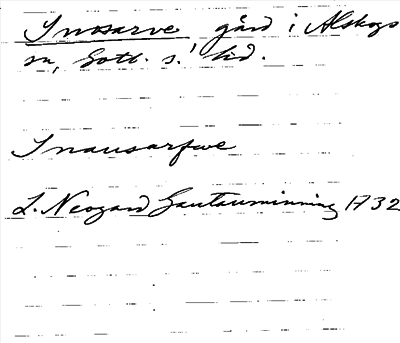 Snosarve gård i Alskogs
sn, Gotl. s. hd.
Snausarfwe
L. Neogard Gautauminning 1732